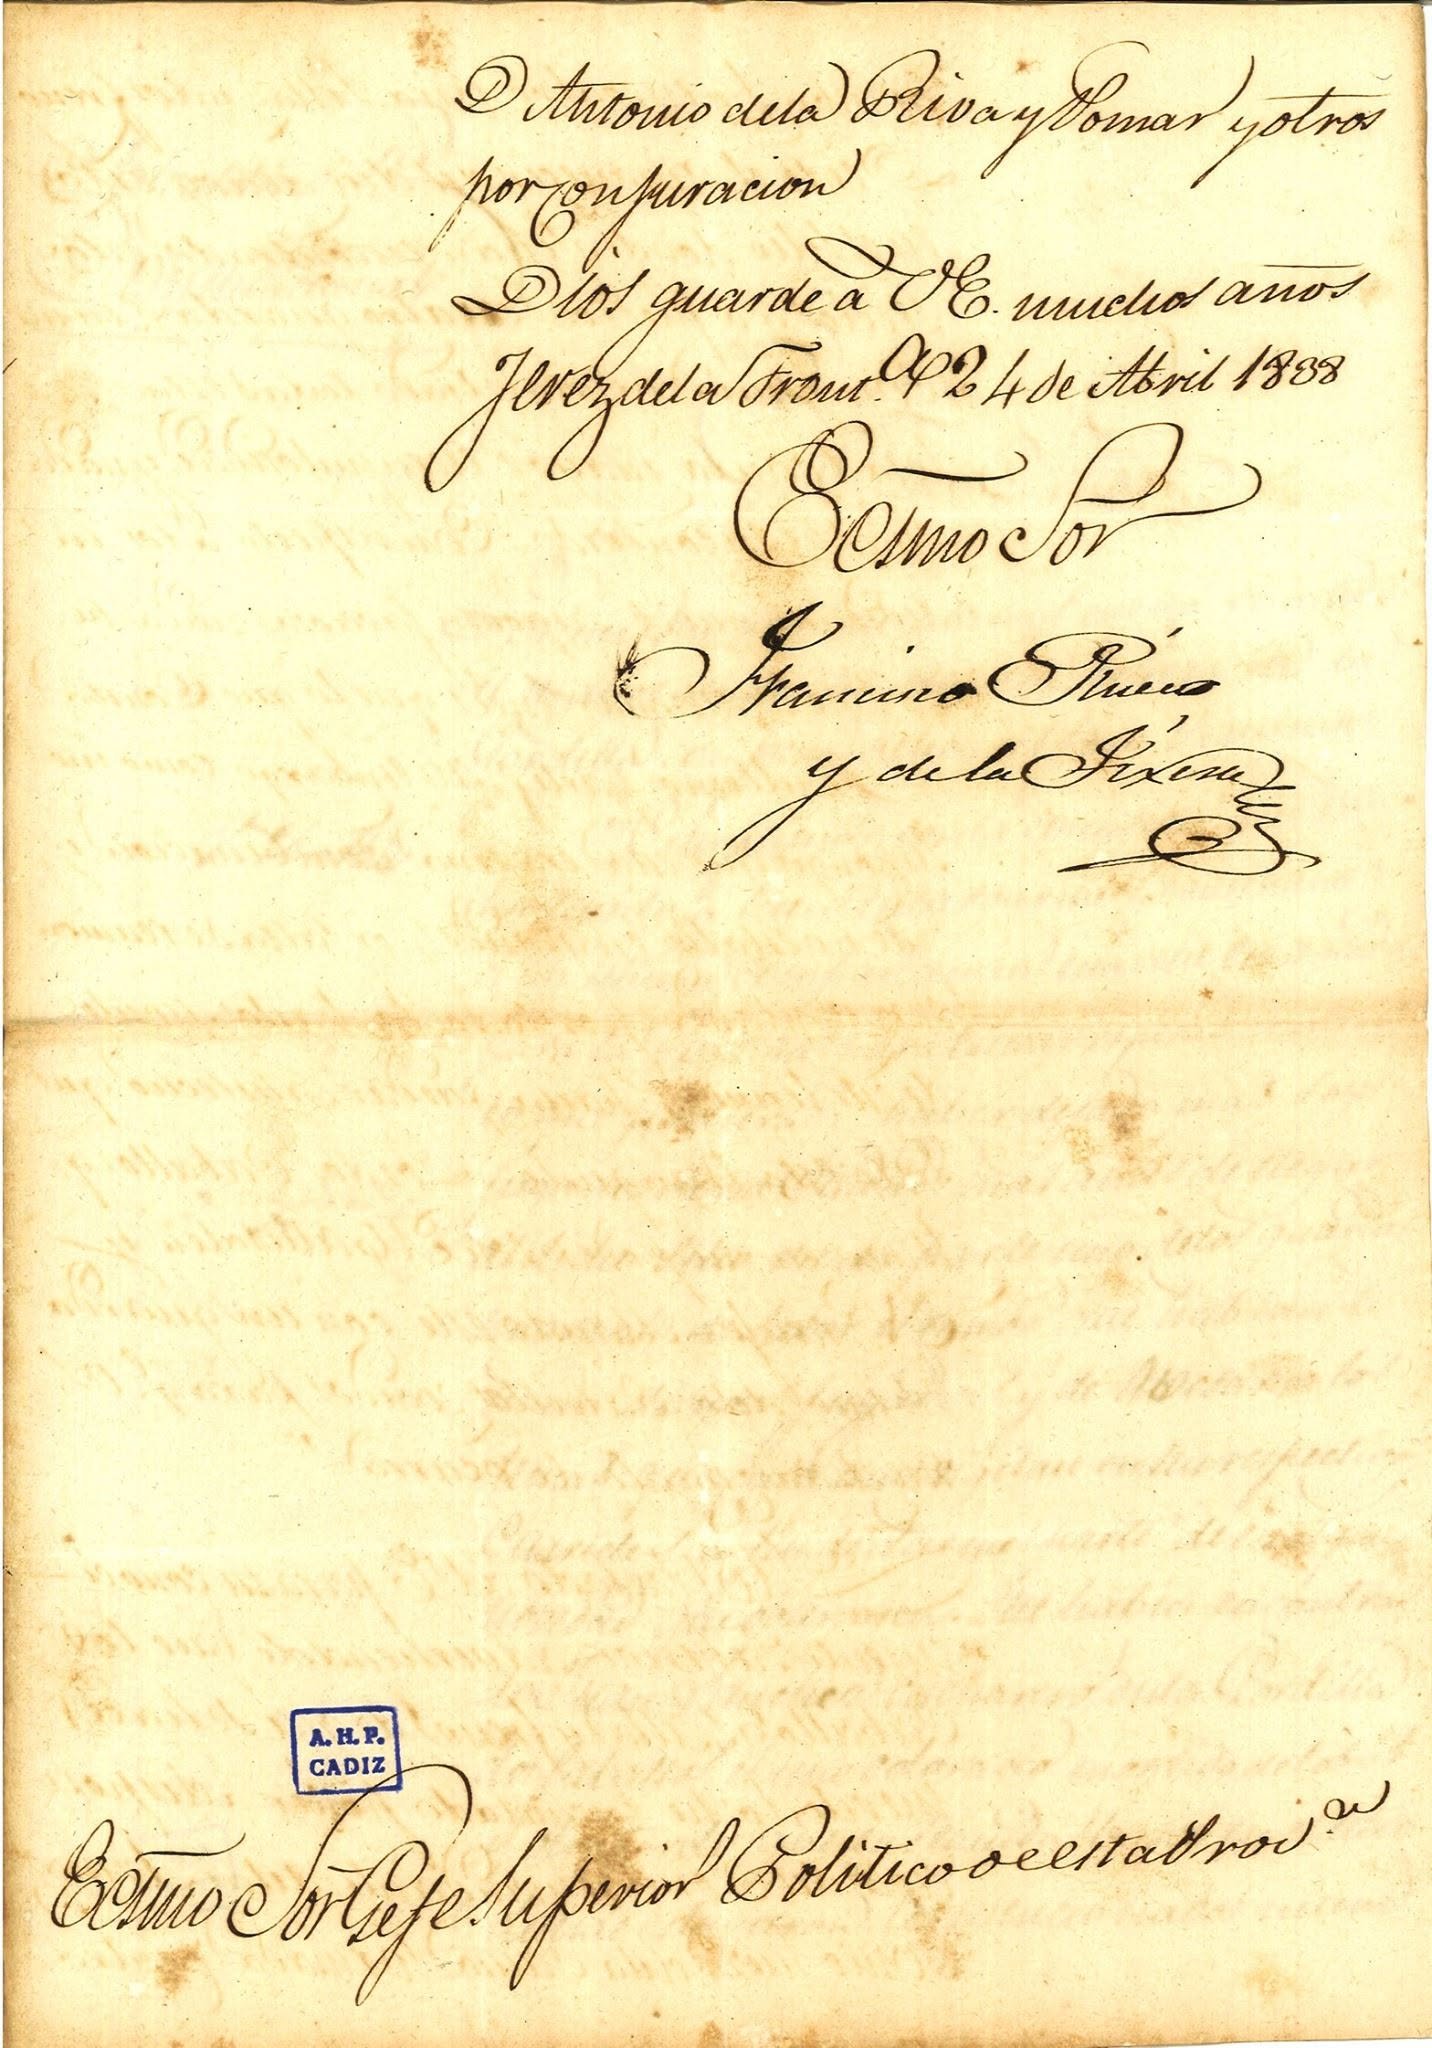 D Antonio de la Riva y Pomar y otros
por Conjuracion
Dios guarde a VE. muchos años
Jerez de la Front.a 24 de Abril 1838
Ecsmo Sor
Francisco
y de la
A. H. P.
CADIZ
Ecsmo Sor Gefe Superior Politico de esta Prov.a